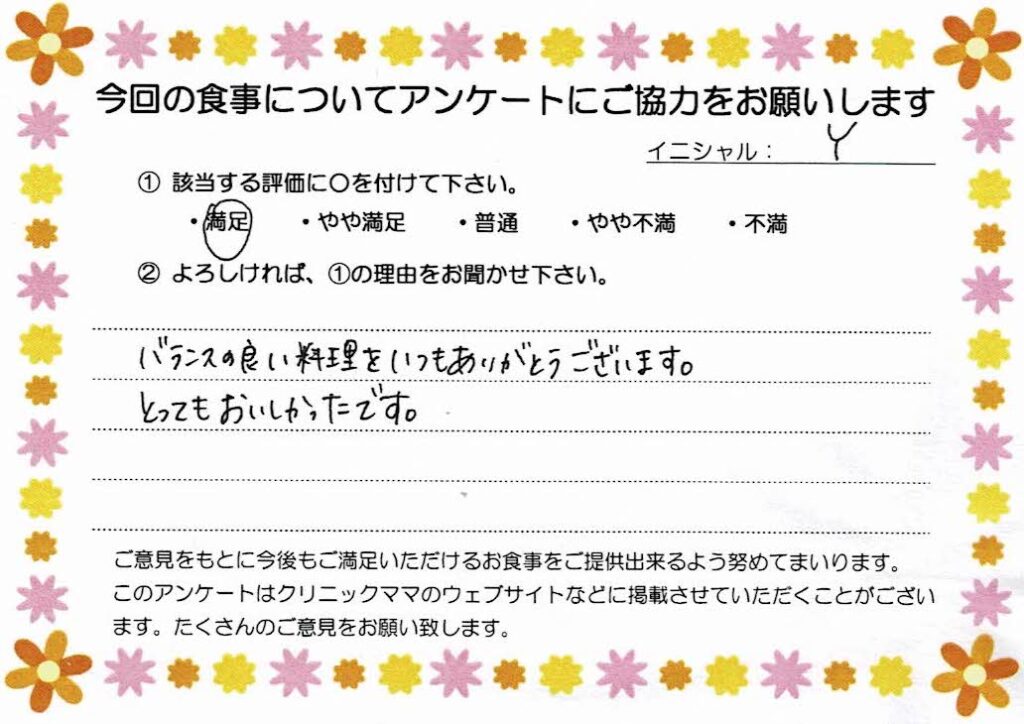 今回の食事についてアンケートにご協力をお願いします
イニシャル： Y
① 該当する評価に〇を付けて下さい。
・満足 ・やや満足 ・普通 ・やや不満 ・不満
② よろしければ、①の理由をお聞かせ下さい。
バランスの良い料理をいつもありがとうございます。
とってもおいしかったです。
ご意見をもとに今後もご満足いただけるお食事をご提供出来るよう努めてまいります。
このアンケートはクリニックママのウェブサイトなどに掲載させていただくことがござい
ます。たくさんのご意見をお願い致します。